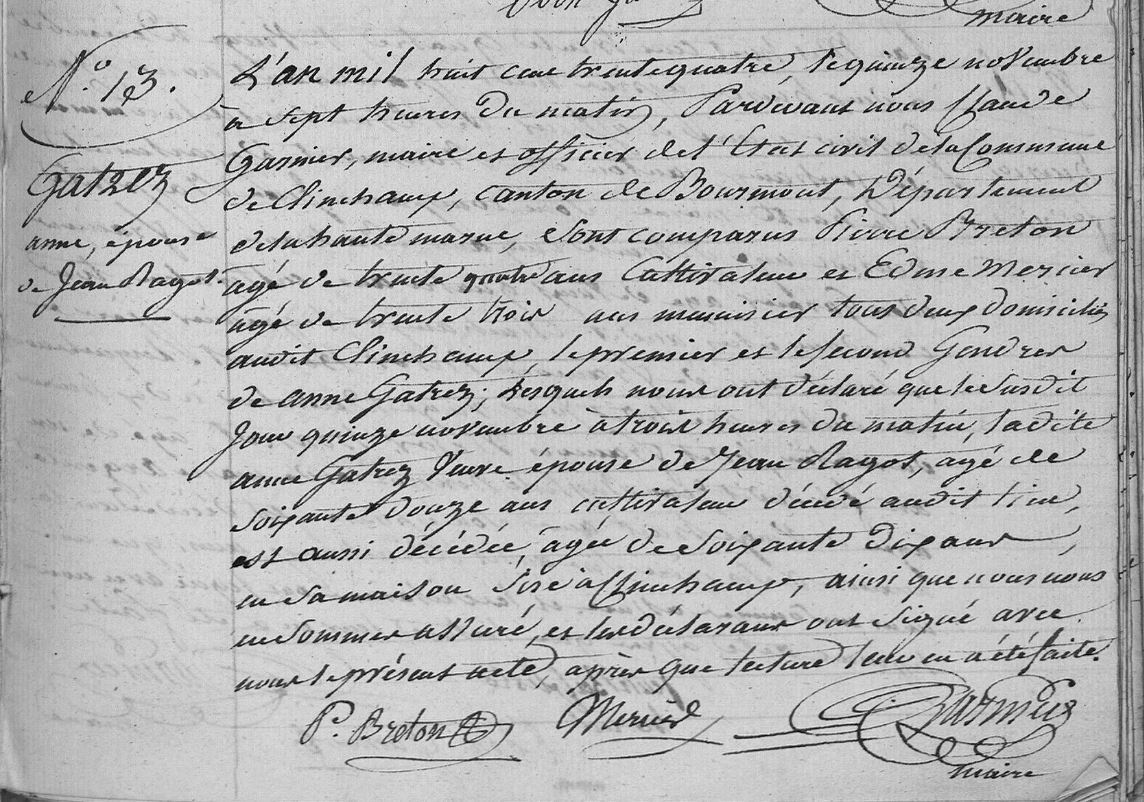 maire
N.o 13.
Gatrez
anne, épouse
de Jean Ragot.
L'an mil huit cent trente quatre, le quinze novembre
à sept heures du matin, Pardevant nous Claude
Garnier, maire et officier de l'Etat civil de la Commune
de Clinchamp, canton de Bourmont, Département
de la haute marne, sont comparus Pierre Breton
agé de trente quatre ans Cultivateur et Edme Mercier
agé de trente trois ans menuisier tous deux domiciliés
audit Clinchamp, le premier et le second Gendres
de anne Gatrez; Lesquels nous ont déclaré que le susdit
Jour quinze novembre à trois heures du matin, ladite
anne Gatrez Veuve épouse de Jean Ragot, agé de
soixante douze ans cultivateur décédé audit lieu,
est aussi décédée, agée de soixante dix ans,
en sa maison sise à Clinchamp, ainsi que nous nous
en sommes assuré, et les déclarans ont signé avec
nous le présent acte, après que lecture leur en a été faite.
P.e Breton Mercier Garnier
maire